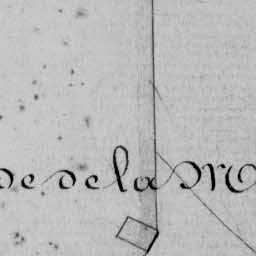 de de la M